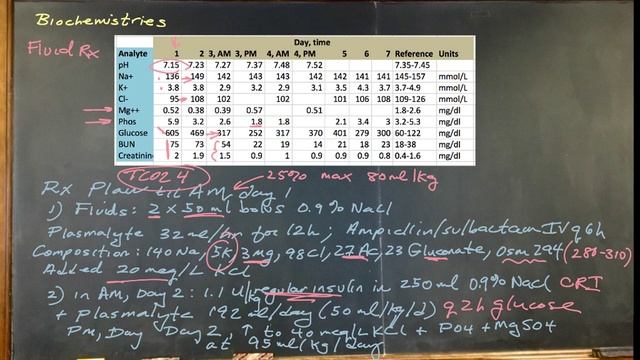 Biochemistries
Fluid Rx
Day, time
Analyte 1 2 3, AM 3, PM 4, AM 4, PM 5 6 7 Reference Units
pH 7.15 7.23 7.27 7.37 7.48 7.52 7.35-7.45
Na+ 136 149 142 143 143 142 142 141 141 145-157 mmol/L
K+ 3.8 3.8 2.9 3.2 2.9 3.1 3.5 4.3 3.7 3.7-4.9 mmol/L
Cl- 95 108 102 102 101 106 108 109-126 mmol/L
Mg++ 0.52 0.38 0.39 0.57 0.51 1.8-2.6 mg/dl
Phos 5.9 3.2 2.6 1.8 1.8 2.1 3.4 3 3.2-5.3 mg/dl
Glucose 605 469 317 252 317 370 401 279 300 60-122 mg/dl
BUN 75 73 54 22 19 14 21 18 23 18-38 mg/dl
Creatinine 2 1.9 1.5 0.9 1 0.9 0.9 0.9 0.8 0.4-1.6 mg/dl
TCO2 4 25% max 80ml/kg
Rx Plan til AM, day 1
1) Fluids: 2 x 50 ml bolus 0.9% NaCl
Plasmalyte 32 ml/hr for 12h; Ampicillin/sulbactam IV q6h
Composition: 140 Na, 5K, 3 mg, 98Cl, 27Ac, 23 Gluconate, Osm 294 (280-310)
Added 20 meq/L KCl
2) in AM, Day 2: 1.1 U/kg regular insulin in 250 ml 0.9% NaCl CRI
+ plasmalyte 192 ml/day (50 ml/kg/d) q2h glucose
Pm, Day Day 2, ↑ to 40 meq/L KCl + PO4 + MgSO4
at 95 ml/kg/day